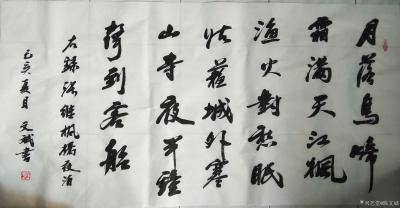 月落乌啼
霜满天江枫
渔火对愁眠
姑苏城外寒
山寺夜半钟
声到客船
右录张继枫桥夜泊
己亥夏月 文斌书